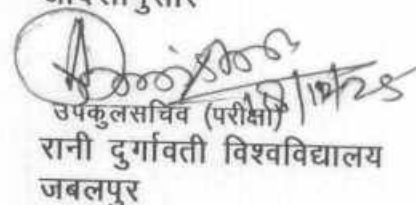 आदेशानुसार
उपकुलसचिव (परीक्षा)
रानी दुर्गावती विश्वविद्यालय
जबलपुर